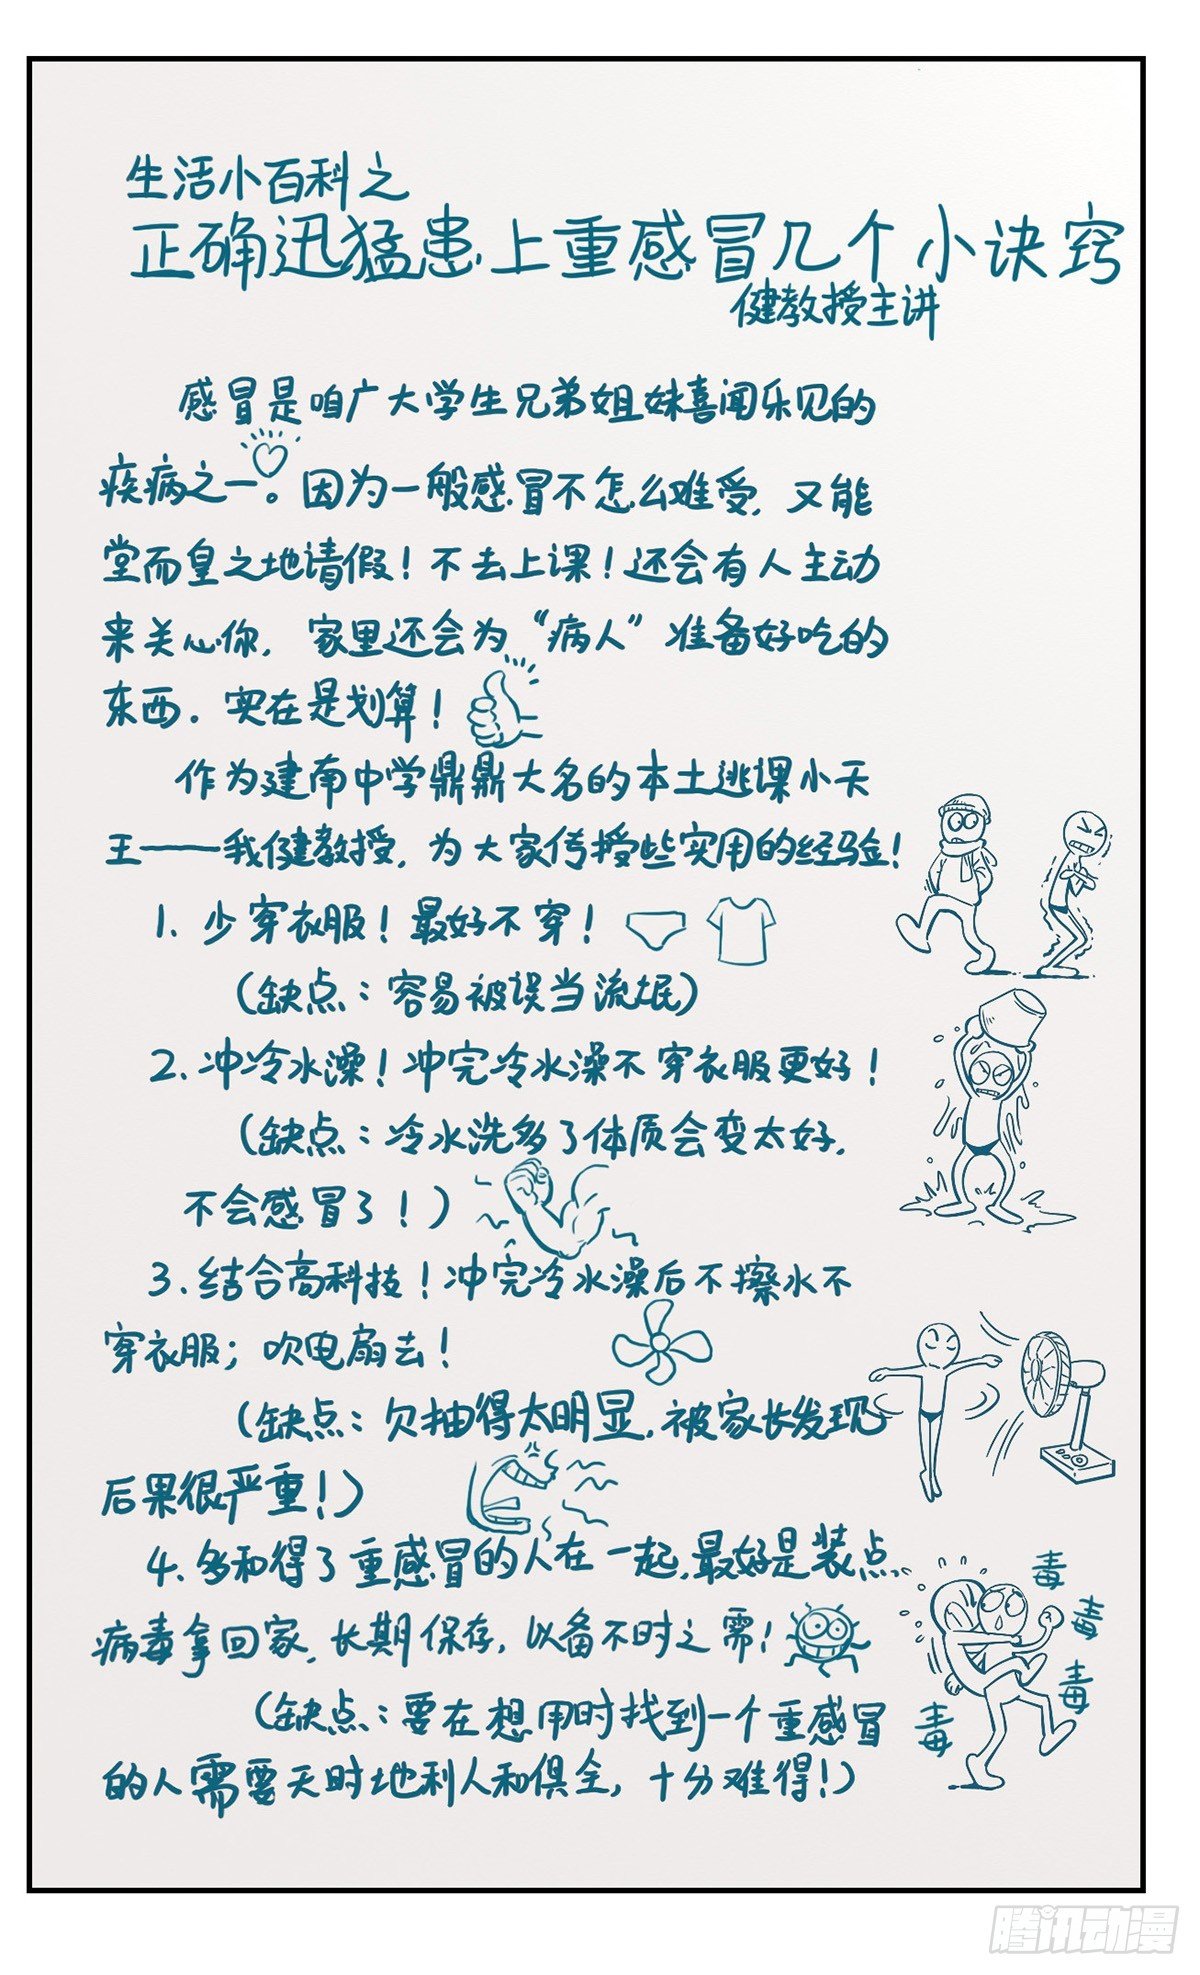 生活小百科之
正确迅猛患上重感冒几个小诀窍
健教授主讲
感冒是咱广大学生兄弟姐妹喜闻乐见的
疾病之一。因为一般感冒不怎么难受,又能
堂而皇之地请假!不去上课!还会有人主动
来关心你,家里还会为“病人”准备好吃的
东西。实在是划算!
作为建南中学鼎鼎大名的本土逃课小天
王——我健教授,为大家传授些实用的经验!
1.少穿衣服!最好不穿!
(缺点:容易被误当流氓)
2.冲冷水澡!冲完冷水澡不穿衣服更好!
(缺点:冷水洗多了体质会变太好,
不会感冒了!)
3.结合高科技!冲完冷水澡后不擦水不
穿衣服;吹电扇去!
(缺点:欠抽得太明显,被家长发现
后果很严重!)
4.多和得了重感冒的人在一起,最好是装点
病毒拿回家,长期保存,以备不时之需!
毒
毒
毒
毒
(缺点:要在想用时找到一个重感冒
的人需要天时地利人和俱全,十分难得!)
腾讯动漫